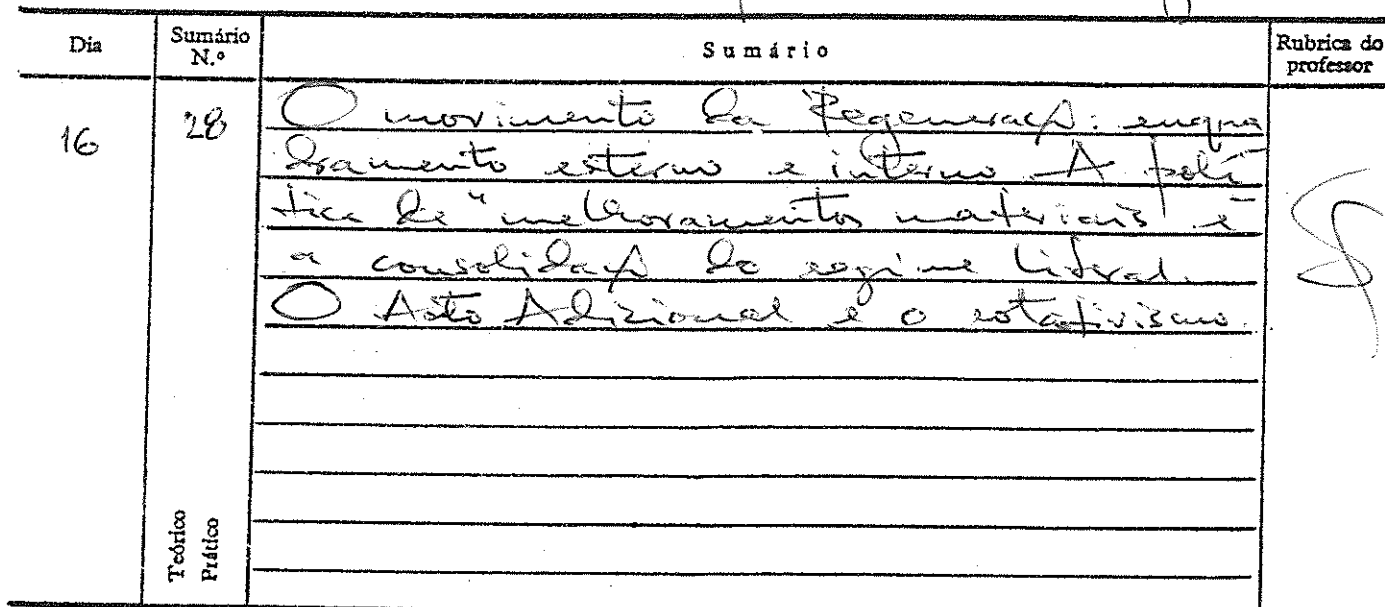 Dia Sumário N.º Sumário Rubrica do professor
16 28 O movimento da Regeneração: enqua
dramento externo e interno. A polí
tica de "melhoramentos materiais" e
a consolidação do regime liberal.
O Acto Adicional e o rotativismo.
Teórico
Prático